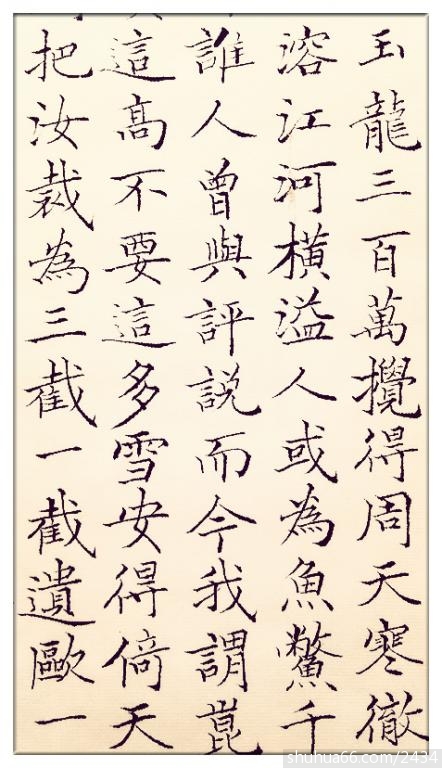 玉龍三百萬攪得周天寒徹
溶江河橫溢人或為魚鱉千
誰人曾與評説而今我謂崑
這高不要這多雪安得倚天
把汝裁為三截一截遺歐一
shuhua66.com/2434